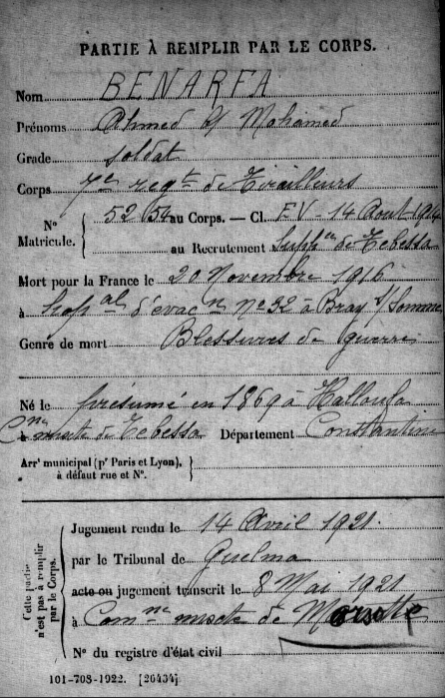 PARTIE À REMPLIR PAR LE CORPS.
Nom BENARFA
Prénoms Ahmed b/ Mohamed
Grade soldat
Corps 7e régt de Tirailleurs
No Matricule. 5254 au Corps. — Cl. EV - 14 Août 1914
au Recrutement de Tebessa
Mort pour la France le 20 Novembre 1916
à Hopal d'évacn No 32 à Bray s/ Somme
Genre de mort Blessures de guerre
Né le présumé en 1869 à Halloufa
Cne mixte de Tebessa Département Constantine
Arrt municipal (pr Paris et Lyon), à défaut rue et No.
Cette partie n'est pas à remplir par le Corps.
Jugement rendu le 14 Avril 1921.
par le Tribunal de Guelma
acte ou jugement transcrit le 8 Mai 1921
à Comne mixte de Morsott
No du registre d'état civil
101-708-1922. [26434]